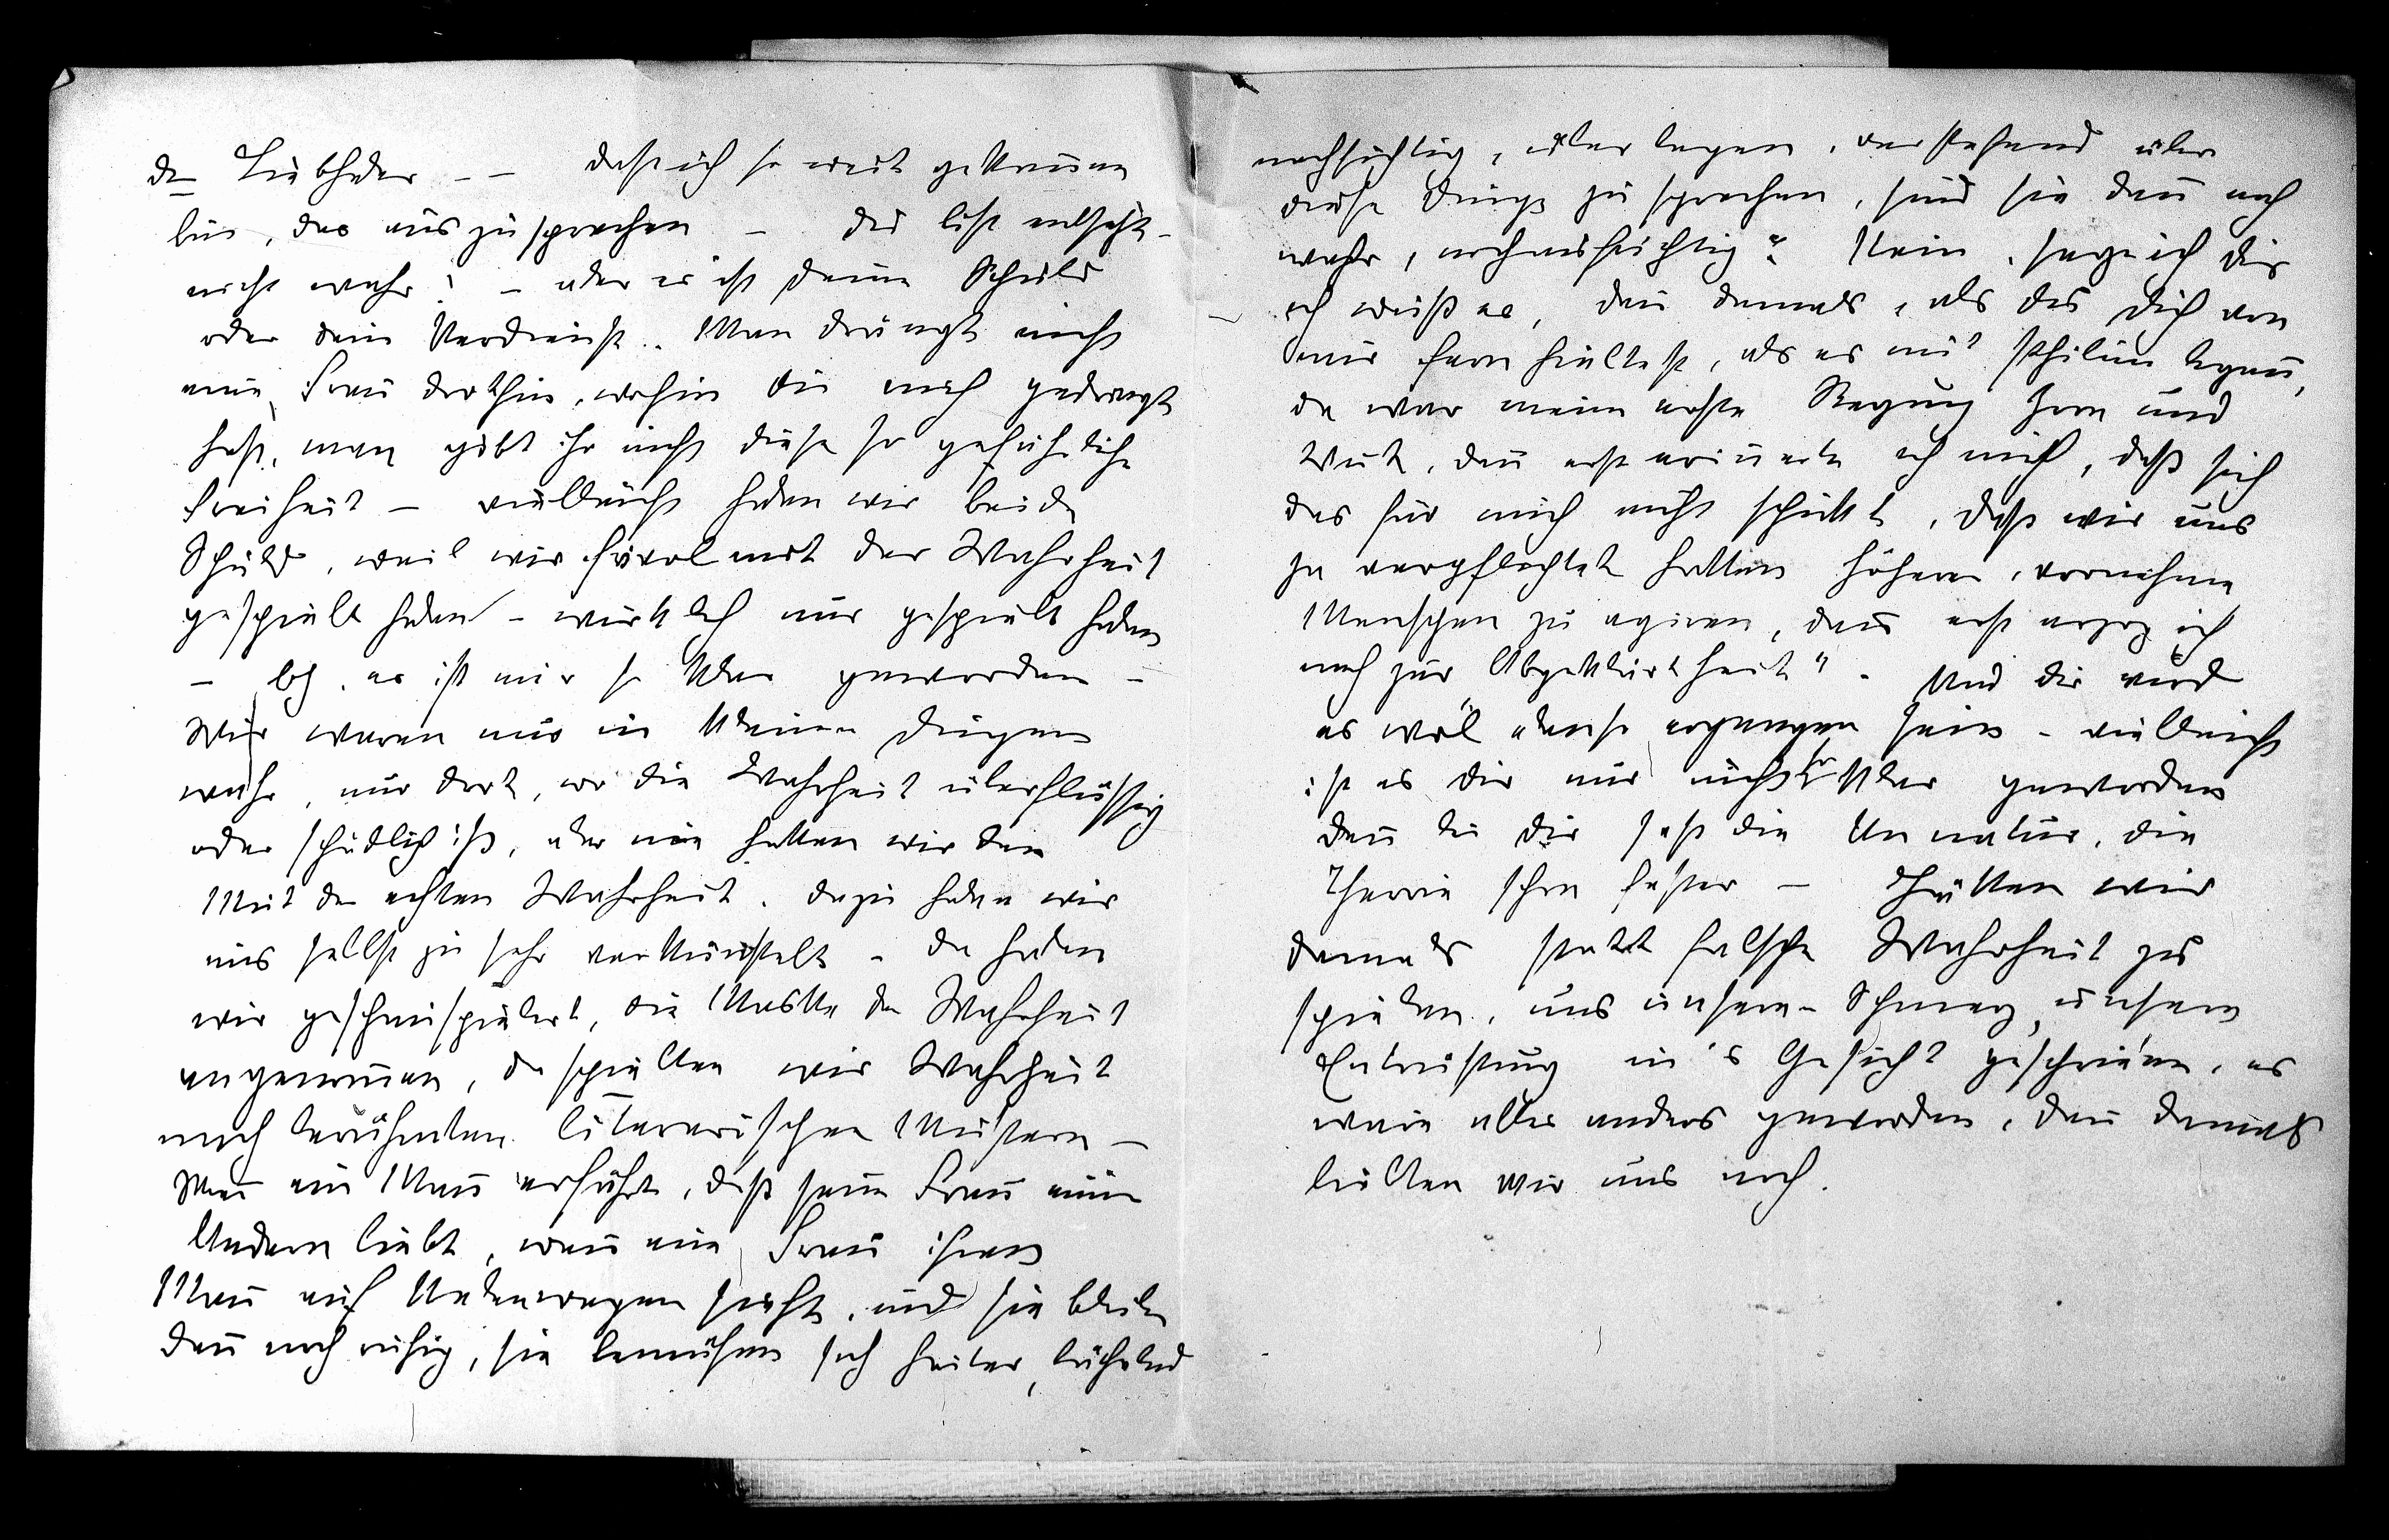 den Liebhaber – – dass ich so weit gekommen
bin, das auszusprechen – du bist entsetzt –
nicht wahr? – aber es ist deine Schuld
oder dein Verdienst. Man drängt nicht
eine Frau dorthin, wohin du mich gedrängt
hast, man gibt ihr nicht diese so gefährliche
Freiheit – vielleicht haben wir beide
Schuld, weil wir frivol mit der Wahrheit
gespielt haben – wirklich nur gespielt haben
– Ich, es ist mir so klar geworden –
Wir waren nur in kleinen Dingen
wahr, nur dort, wo die Wahrheit überflüssig
oder schädlich ist, aber nie hatten wir den
Mut der echten Wahrheit. dazu haben wir
uns selbst zu sehr verkünstelt – da haben
wir geschauspielert, die Maske der Wahrheit
angenommen, da spielten wir Wahrheit
nach berühmten literarischen Mustern –
Wen̄ ein Man̄ erfährt, daß seine Frau einen
Andern liebt, wen̄ eine Frau ihren
Man̄ auf Nebenwegen sieht, und sie bleiben
dan̄ noch ruhig, sie bemühen sich heiter, lächelnd
nachsichtig, überlegen, verstehend über
diese Dinge zu sprechen, sind sie dan̄ noch
wahr, noch aufrichtig? Nein, sage ich dir
ich weiß es, den̄ damals, als du dich von
mir fern hieltest, als es mit began̄,
da war meine erste Regung Zorn und
Wut, dan̄ erst erin̄erte ich mich, daß sich
das für mich nicht schickt, daß wir uns
ja verpflichtet hatten höhere, vornehme
Menschen zu agiren, dan̄ erst erzog ich
mich zur „Abgeklärtheit". Und dir wird
es wol ebenso ergangen sein – vielleicht
ist es dir nur nicht so klar geworden
den̄ bei dir saß die Unnatur, die
Theorie schon fester – Hätten wir
damals statt falsche Wahrheit zu
spielen, uns unseren Schmerz, unsere
Entrüstung in's Gesicht geschrieen, es
wäre alles anders geworden, den̄ damals
liebten wir uns noch.